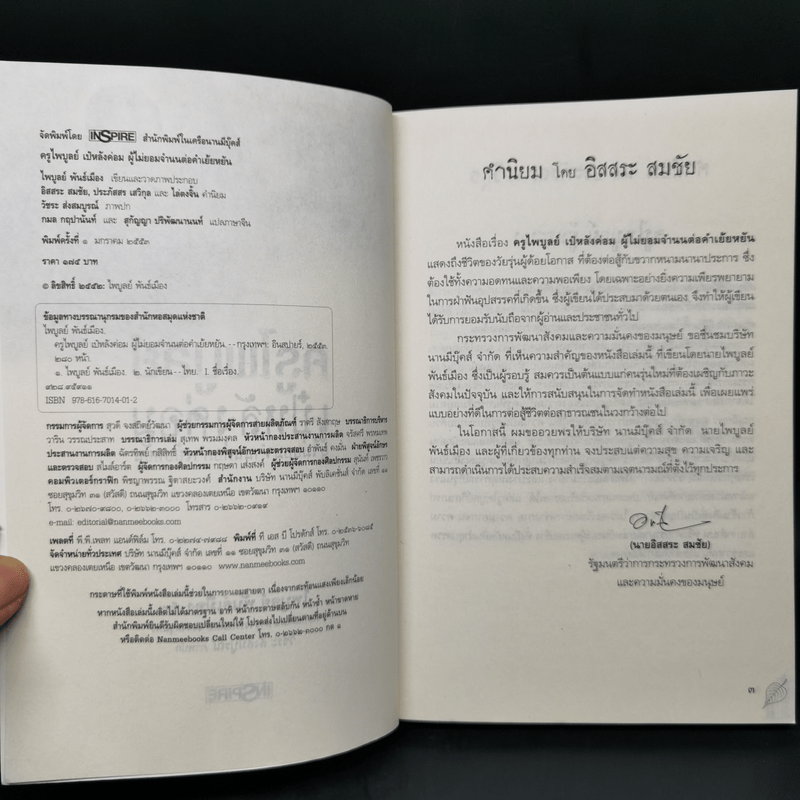 จัดพิมพ์โดย INSPIRE สำนักพิมพ์ในเครือนานมีบุ๊คส์
ครูไพบูลย์ เป๋หลังค่อม ผู้ไม่ยอมจำนนต่อคำเย้ยหยัน
ไพบูลย์ พันธ์เมือง เขียนและวาดภาพประกอบ
อิสสระ สมชัย, ประภัสสร เสวิกุล และ ไล่ตงจิ้น คำนิยม
วัชระ ส่งสมบูรณ์ ภาพปก
กมล กฤปานันท์ และ สุกัญญา ปริพัฒนานนท์ แปลภาษาจีน
พิมพ์ครั้งที่ ๑ มกราคม ๒๕๕๓
ราคา ๑๗๕ บาท
© ลิขสิทธิ์ ๒๕๕๒: ไพบูลย์ พันธ์เมือง
ข้อมูลทางบรรณานุกรมของสำนักหอสมุดแห่งชาติ
ไพบูลย์ พันธ์เมือง.
ครูไพบูลย์ เป๋หลังค่อม ผู้ไม่ยอมจำนนต่อคำเย้ยหยัน.--กรุงเทพฯ: อินสปายร์, ๒๕๕๓.
๒๘๐ หน้า.
๑. ไพบูลย์ พันธ์เมือง ๒. นักเขียน--ไทย. I. ชื่อเรื่อง.
๙๒๘.๙๕๙๑๑
ISBN 978-616-7014-01-2
กรรมการผู้จัดการ สุวดี จงสถิตย์วัฒนา ผู้ช่วยกรรมการผู้จัดการสายผลิตภัณฑ์ ราตรี สังสกฤษ บรรณาธิการบริหาร
วาริน วรรณประสาท บรรณาธิการเล่ม สุเทพ พรมมงคล หัวหน้ากองประสานงานการผลิต จรัสศรี พรหมเทพ
ประสานงานการผลิต ฉัตรทิพย์ กสิสิทธิ์ หัวหน้ากองพิสูจน์อักษรและตรวจสอบ อำพันธ์ คงมั่น ฝ่ายพิสูจน์อักษร
และตรวจสอบ สไมล์อ้อร์ต ผู้จัดการกองศิลปกรรม กฤษดา เส่งสงค์ ผู้ช่วยผู้จัดการกองศิลปกรรม สุนันท์
คอมพิวเตอร์กราฟิก พิชญาพรรณ ฐิตาสยะวงศ์ สำนักงาน บริษัท นานมีบุ๊คส์ พับลิเคชันส์ จำกัด เลขที่ ๑๑
ซอยสุขุมวิท ๓๑ (สวัสดี) ถนนสุขุมวิท แขวงคลองเตยเหนือ เขตวัฒนา กรุงเทพฯ ๑๐๑๑๐
โทร. ๐-๒๖๗๐-๙๘๐๐, ๐-๒๖๖๒-๓๐๐๐ โทรสาร ๐-๒๖๖๒-๐๙๑๙
e-mail: editorial@nanmeebooks.com
เพลตที่ พี.พี.เพลท แอนด์ฟิล์ม โทร. ๐-๒๒๗๔-๗๙๘๘ พิมพ์ที่ ที เอส บี โปรดักส์ โทร. ๐-๒๕๗๖-๖๐๘๕
จัดจำหน่ายทั่วประเทศ บริษัท นานมีบุ๊คส์ จำกัด เลขที่ ๑๑ ซอยสุขุมวิท ๓๑ (สวัสดี) ถนนสุขุมวิท
แขวงคลองเตยเหนือ เขตวัฒนา กรุงเทพฯ ๑๐๑๑๐ www.nanmeebooks.com
กระดาษที่ใช้พิมพ์หนังสือเล่มนี้ช่วยในการถนอมสายตา เนื่องจากสะท้อนแสงเพียงเล็กน้อย
หากหนังสือเล่มนี้ผลิตไม่ได้มาตรฐาน อาทิ หน้ากระดาษสลับกัน หน้าซ้ำ หน้าขาดหาย
สำนักพิมพ์ยินดีรับผิดชอบเปลี่ยนใหม่ให้ โปรดส่งไปเปลี่ยนตามที่อยู่ด้านบน
หรือติดต่อ Nanmeebooks Call Center โทร. ๐-๒๖๖๒-๓๐๐๐ กด ๑
คำนิยม โดย อิสสระ สมชัย
หนังสือเรื่อง ครูไพบูลย์ เป๋หลังค่อม ผู้ไม่ยอมจำนนต่อคำเย้ยหยัน
แสดงถึงชีวิตของวัยรุ่นผู้ด้อยโอกาส ที่ต้องต่อสู้กับขวากหนามนานาประการ ซึ่ง
ต้องใช้ทั้งความอดทนและความพอเพียง โดยเฉพาะอย่างยิ่งความเพียรพยายาม
ในการฝ่าฟันอุปสรรคที่เกิดขึ้น ซึ่งผู้เขียนได้ประสบมาด้วยตนเอง จึงทำให้ผู้เขียน
ได้รับการยอมรับนับถือจากผู้อ่านและประชาชนทั่วไป
กระทรวงการพัฒนาสังคมและความมั่นคงของมนุษย์ ขอชื่นชมบริษัท
นานมีบุ๊คส์ จำกัด ที่เห็นความสำคัญของหนังสือเล่มนี้ ที่เขียนโดยนายไพบูลย์
พันธ์เมือง ซึ่งเป็นผู้รอบรู้ สมควรเป็นต้นแบบแก่คนรุ่นใหม่ที่ต้องเผชิญกับภาวะ
สังคมในปัจจุบัน และให้การสนับสนุนในการจัดทำหนังสือเล่มนี้ เพื่อเผยแพร่
แบบอย่างที่ดีในการต่อสู้ชีวิตต่อสาธารณชนในวงกว้างต่อไป
ในโอกาสนี้ ผมขออวยพรให้บริษัท นานมีบุ๊คส์ จำกัด นายไพบูลย์
พันธ์เมือง และผู้ที่เกี่ยวข้องทุกท่าน จงประสบแต่ความสุข ความเจริญ และ
สามารถดำเนินการได้ประสบความสำเร็จสมตามเจตนารมณ์ที่ตั้งไว้ทุกประการ
(นายอิสสระ สมชัย)
รัฐมนตรีว่าการกระทรวงการพัฒนาสังคม
และความมั่นคงของมนุษย์
๓